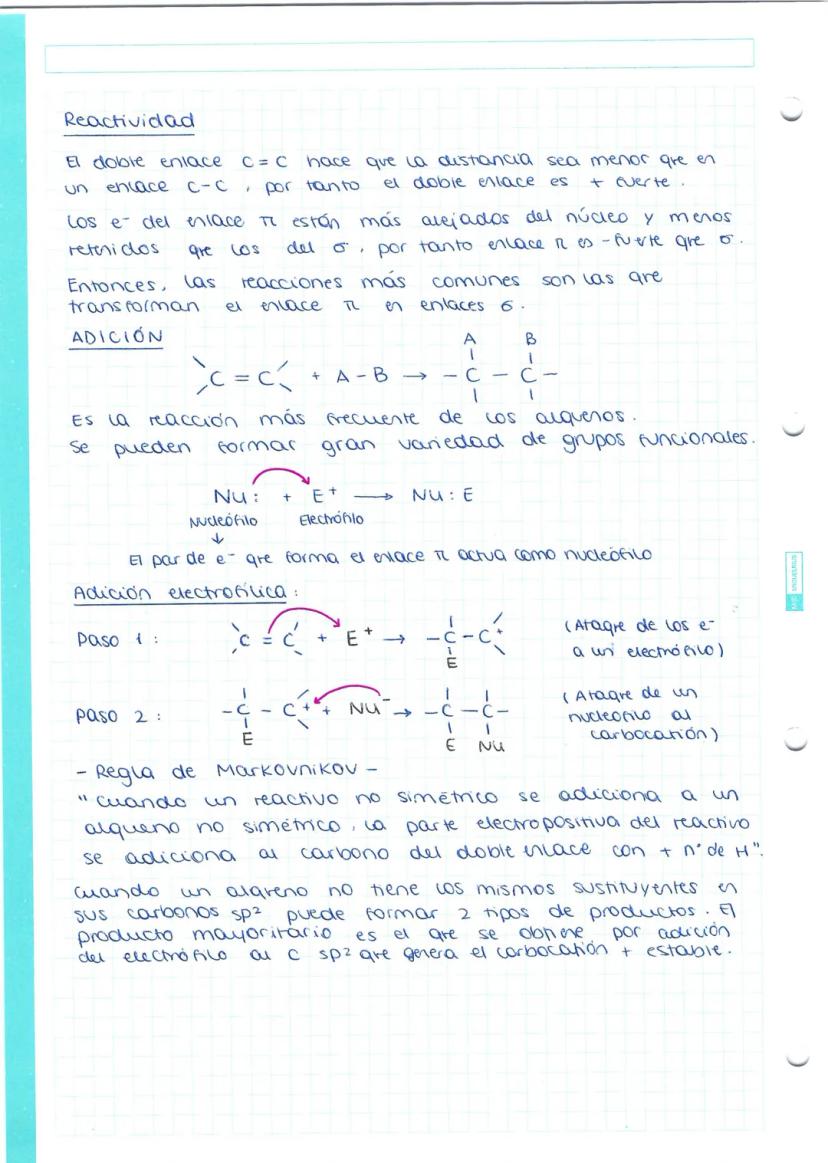 Reactividad
El doble enlace C = C hace que la distancia sea menor que en
un enlace C-C, por tanto el doble enlace es + fuerte.
Los e- del enlace π están más alejados del núcleo y menos
retenidos que los del σ, por tanto enlace π es -fuerte que σ.
Entonces, las reacciones más comunes son las que
transforman el enlace π en enlaces σ.
ADICIÓN
A B
C = C + A - B → - C - C -
Es la reacción más frecuente de los alquenos.
Se pueden formar gran variedad de grupos funcionales.
Nu: + E+ → Nu : E
Nucleófilo Electrófilo
↓
El par de e- que forma el enlace π actua como nucleófilo
Adición electrofílica:
Paso 1: C = C + E+ → - C - C+ (Ataque de los e-
E a un electrófilo)
Paso 2: - C - C+ + Nu- → - C - C - (Ataque de un
nucleofilo al
E E Nu carbocatión)
- Regla de Markovnikov -
"Cuando un reactivo no simétrico se adiciona a un
alqueno no simétrico, la parte electropositiva del reactivo
se adiciona al carbono del doble enlace con + nº de H".
Cuando un alqueno no tiene los mismos sustituyentes en
sus carbonos sp² puede formar 2 tipos de productos. El
producto mayoritario es el que se obtiene por adición
del electrófilo al C sp² que genera el carbocatión + estable.